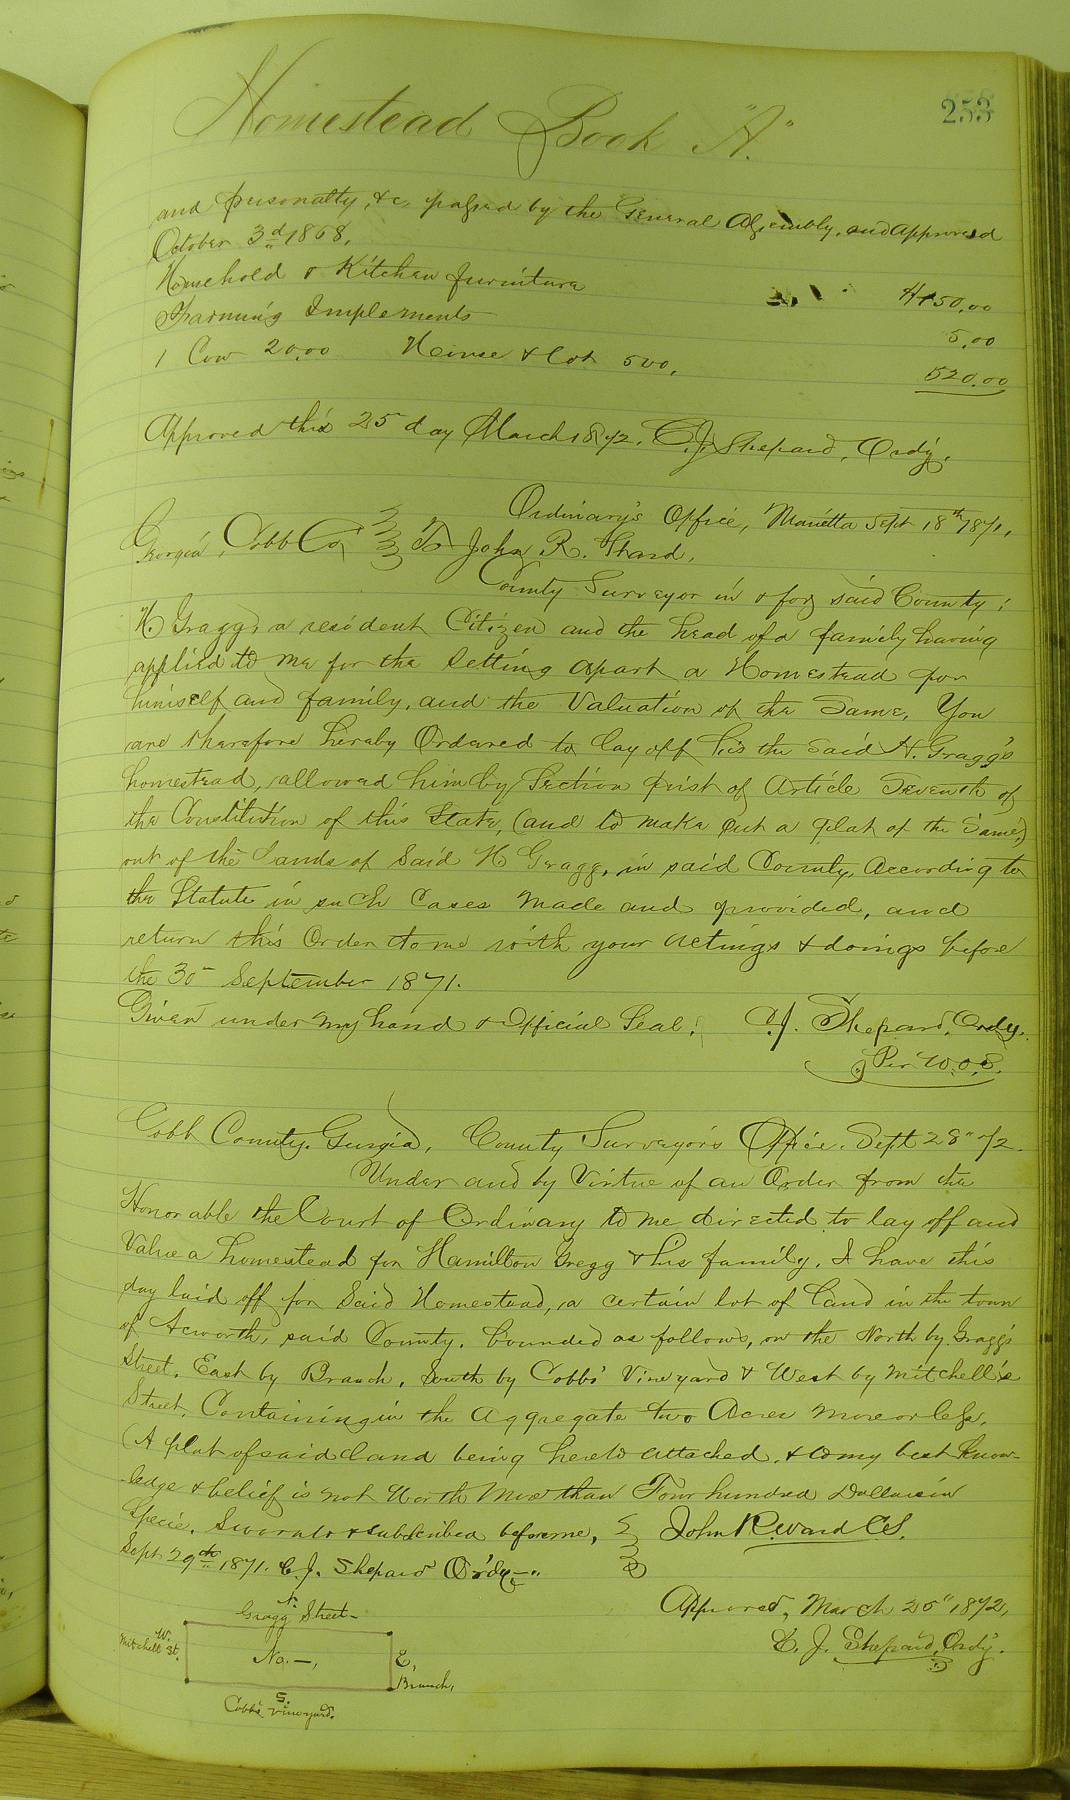 253
Homestead Book "A."
and personalty, &c, passed by the General Assembly, and approved
October 3d 1868.
Household & Kitchen furniture $150.00
Farming Implements 5.00
1 Cow 20.00 House & lot 500. 520.00
Approved this 25 day March 1872. C. J. Shepard, Ordy.
Ordinary's Office, Marietta Sept 18th 1871.
Georgia, Cobb Co, To John R. Ward,
County Surveyor in & for said County;
H. Gragg, a resident Citizen and the head of a family having
applied to me for the Setting apart a Homestead for
himself and family, and the Valuation of the Same. You
are therefore hereby Ordered to lay off his the Said H. Gragg's
homestead, allowed him by Section first of Article Seventh of
the Constitution of this State, (and to make out a plat of the Same,)
out of the Lands of Said H Gragg, in said County, According to
the Statute in such Cases made and provided, and
return this Order to me with your actings & doings before
the 30 September 1871.
Given under my hand & Official Seal. C. J. Shepard, Ordy.
Per W. O. S.
Cobb County, Georgia, County Surveyor's Office. Sept 28" 72.
Under and by Virtue of an Order from the
Honorable the Court of Ordinary to me directed to lay off and
Value a homestead for Hamilton Gregg & his family, I have this
day laid off for Said Homestead, a certain lot of Land in the town
of Acworth, said County. bounded as follows, on the North by Gragg's
Street, East by Branch, South by Cobbs' Vineyard & West by Mitchell's
Street, Containing in the Aggregate two Acres more or less.
(A plat of said land being hereto attached, & to my best know-
ledge & belief is not Worth More than Four hundred Dollars in
Specie. Sworn to & subscribed before me, John R. Ward C.S.
Sept 29th 1871. C. J. Shepard Ordy
Approved, March 25" 1872,
C. J. Shepard, Ordy.
N.
Gragg Street
W.
Mitchell St.
No. —,
E,
Branch,
S.
Cobb's Vineyard.